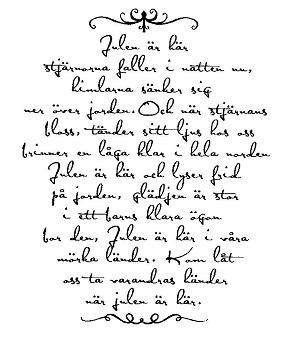 Julen är här
stjärnorna faller i natten nu,
himlarna sänker sig
ner över jorden. Och när stjärnans
floss, tänder sitt ljus hos oss
brinner en låga klar i hela norden
Julen är här och lyser frid
på jorden, glädjen är stor
i ett barns klara ögon
for den, Julen är här i våra
mörka länder. Kom låt
oss ta varandras händer
när julen är här.